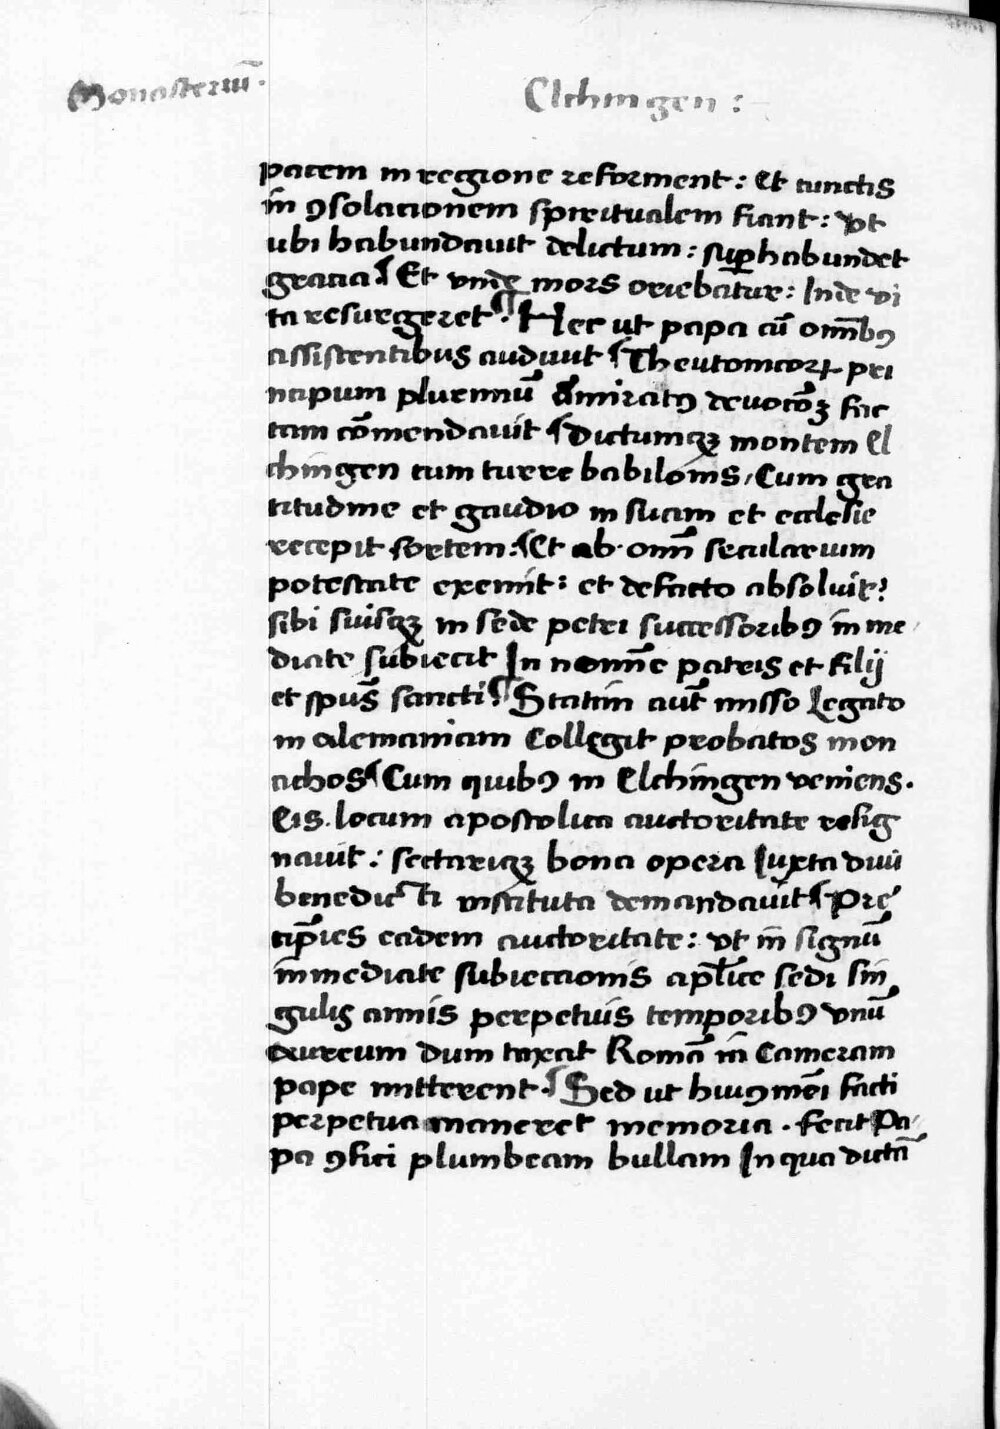 Monasteriū.
Elchingen :
pacem in regione reforment : Et cunctis
in ꝯsolacionem spiritualem fiant : Vt
ubi habundauit delictum : suꝑhabundet
gracia ¶ Et vnde mors oriebatur : Inde vi
ta resurgeret ¶ Hec ut papa cū om̄ibꝯ
assistentibus audiuit ¶ Theutonicoꝝ pri
ncipum plurimū am̄iratꝯ deuocōꝫ fac
tam cōmendauit ¶ Dictumqꝫ montem El
chingen cum turre babilonis / Cum gra
titudine et gaudio in suam et ecclesie
recepit sortem : ¶ Et ab om̄i secularium
potestate exemit : et defacto absoluit :
sibi suisqꝫ in sede petri successoribꝯ in me
diate subiecit In nom̄ie patris et filij
et spūs sancti ¶ Statim aut̄ misso Legato
in alemaniam Collegit probatos mon
achos ¶ Cum quibꝯ in Elchingen veniens .
Eis . locum apostolica auctoritate resig
nauit : sectariqꝫ bona opera Iuxta diui
benedicti instituta demandauit ¶ Pre
cip̄ies eadem auctoritate : vt in signū
inmediate subiectionis ap̄lice sedi sin
gulis annis perpetuis temporibꝯ vnū
aureum dum taxat Romā in Cameram
pape mitterent . ¶ Sed ut huiꝯmēi facti
perpetua maneret memoria . fecit Pa
pa ꝯfici plumbeam bullam In qua dictā